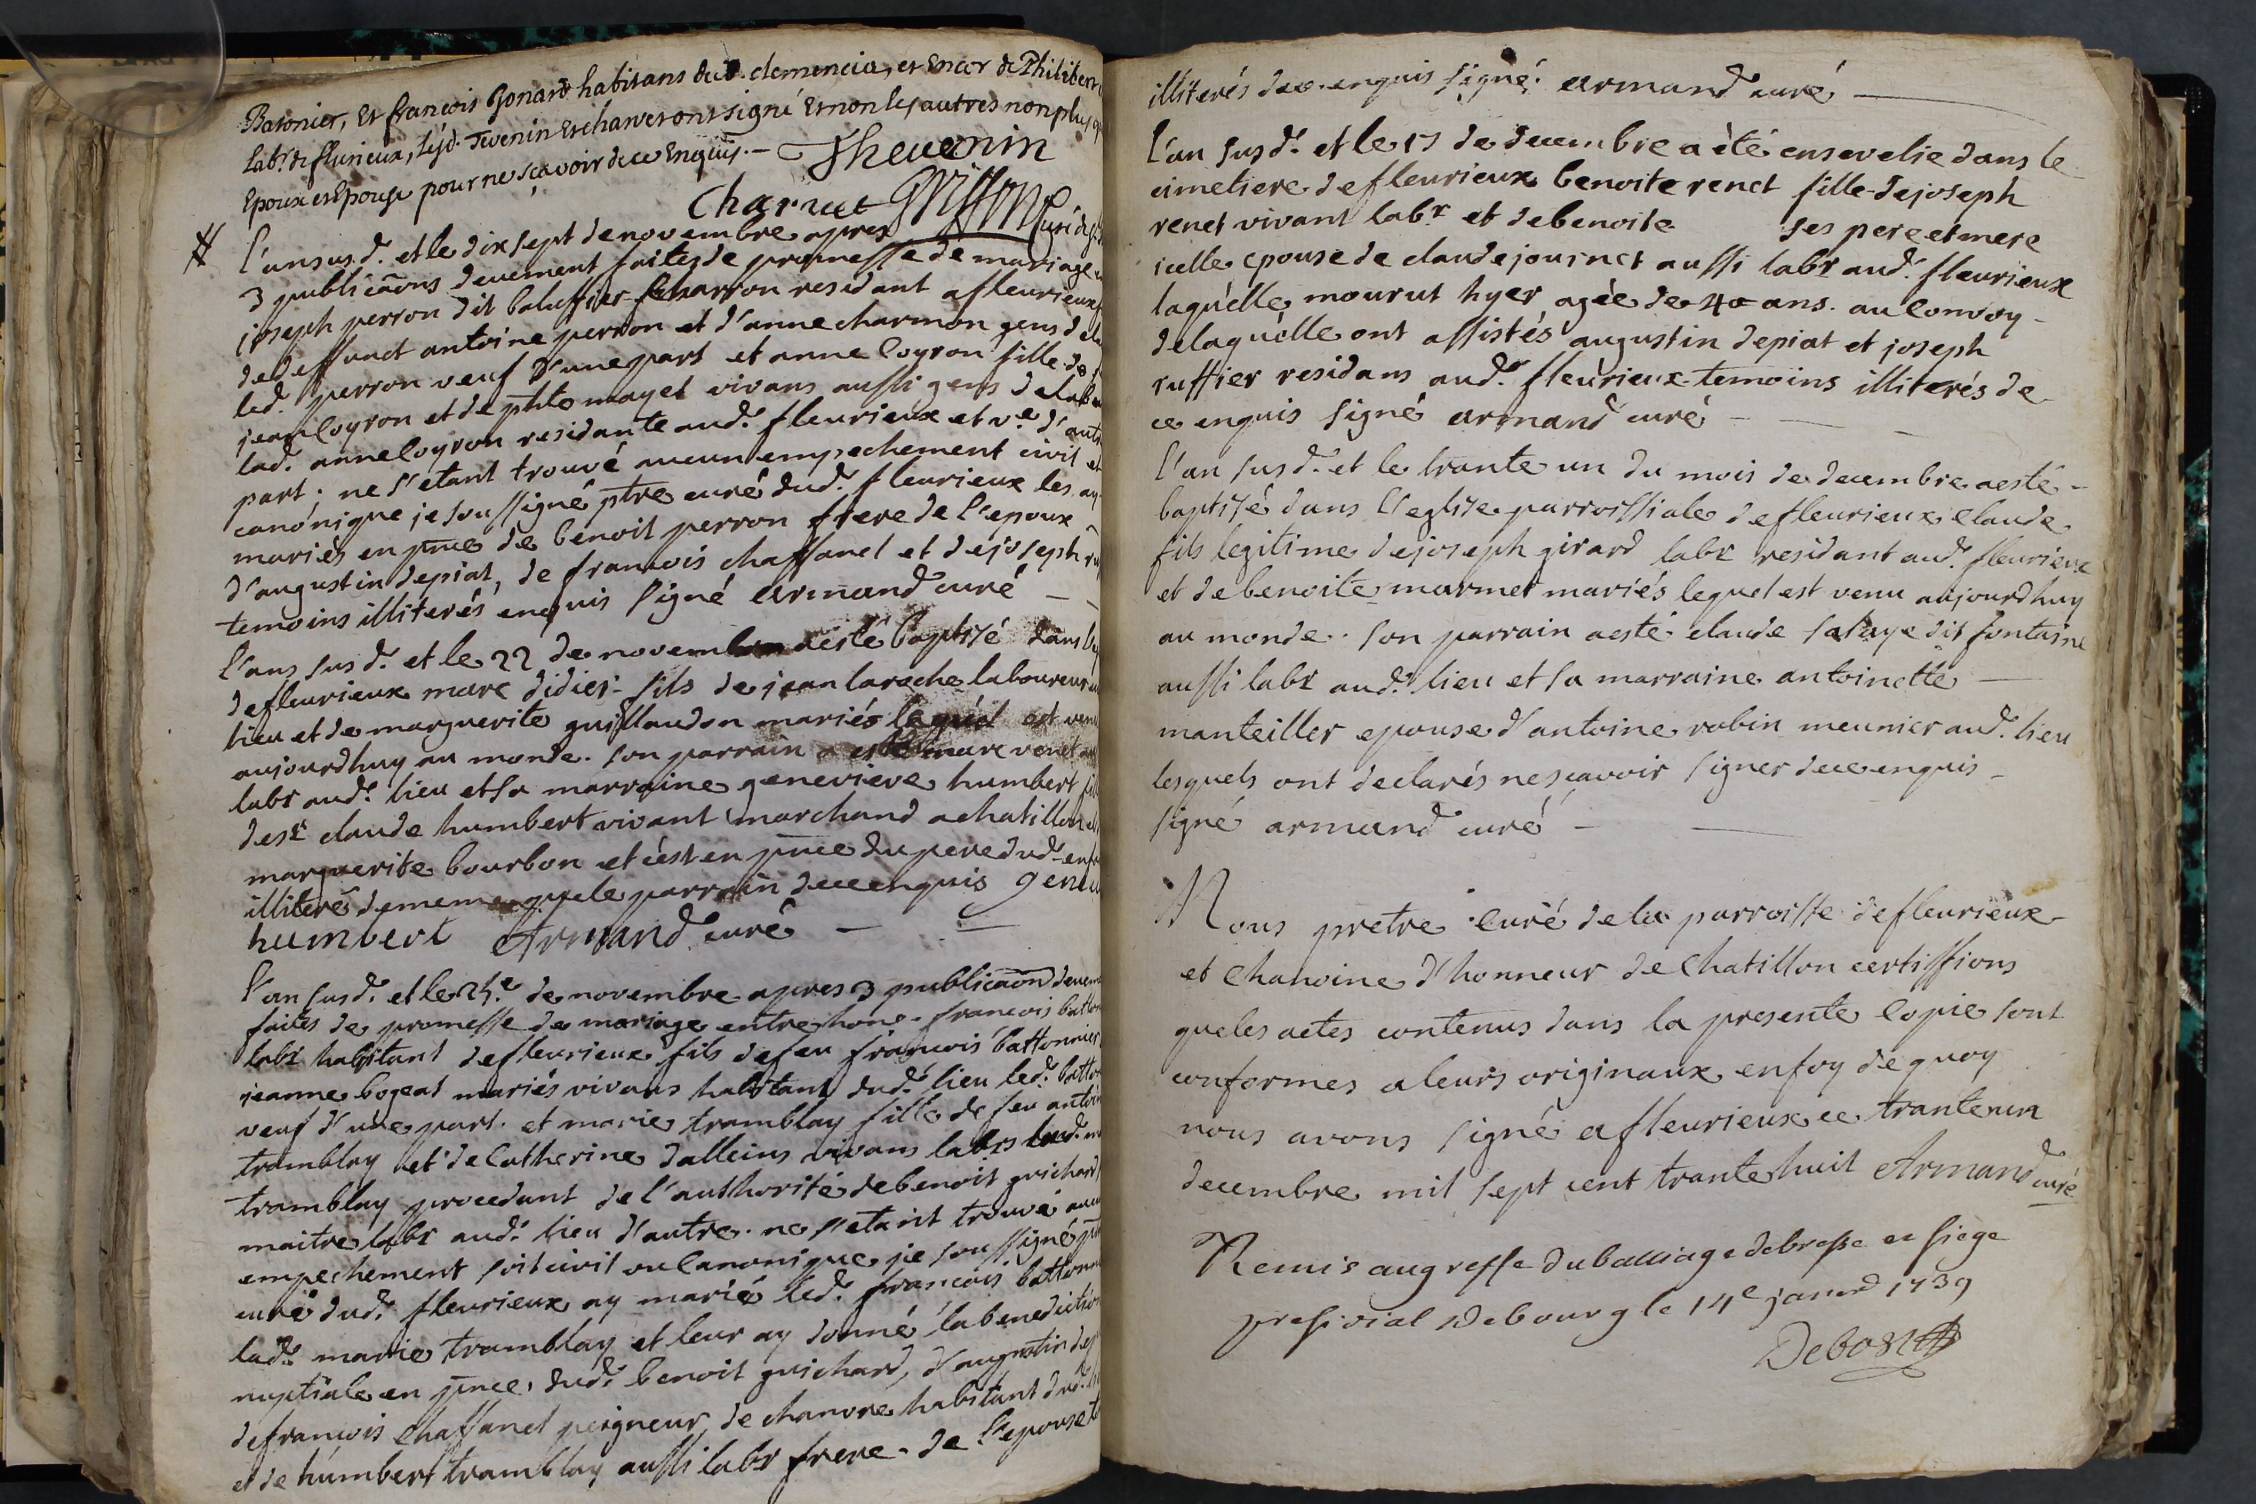 Batonier, Et françois Gonard habitans de St. clemencia, et Encor de Philibert
Labr. de flurieux, lesd. Tevenin Et charvet ont signé Et non les autres non plus q
Epoux et Epouse pour ne sçavoir de ce Enquis. — Thevenin
Charvet Grisson Curé de
l'an susd. et le dix sept de novembre apres
3 publicaõns deuement faites de promesse de mariage
joseph perron dit baluffier charron residant a fleurieux
de deffunct antoine perron et d'anne charmon gens de la
led. perron veuf d'une part et anne Coyron fille de
jean Coyron et de phte mayet vivans aussi gens de lab
lad. anne Coyron residante aud. fleurieux et ve. d'autre
part; ne s'etant trouvé aucun empechement civil et
canonique je soussigné ptre curé dud. fleurieux les ay
mariés en pnce de benoit perron frere de l'epoux
d'augustin depiat, de francois chaffanel et de joseph ru
temoins illiterés enquis signé armand curé —
l'ans susd. et le 22 de novembre aesté baptisé dans l'eg
de fleurieux marc didier fils de jean laroche laboureur
lieu et de marguerite guillaudon mariés lequel est venu
aujourdhuy au monde. son parrain a esté marc venet
labr aud. lieu et sa marraine genevieve humbert fil
de sr. claude humbert vivant marchand a chatillon et
marguerite bourbon et c'est en pnce du pere dud. enfa
illiteré dememe que le parrain de ce enquis genev
humbert Armand curé —
l'an susd. et le 25e de novembre apres 3 publicaõn deuem
faites de promesse de mariage entre hone. francois batton
labr habitant de fleurieux fils de feu francois battonnier
jeanne bogeat mariés vivans habitans dud. lieu led. batton
veuf d'une part. et marie tramblay fille de feu antoi
tramblay et de Catherine dalleins vivans labrs lad. ma
tramblay procedant de l'authorité de benoit guichard
maitre labr aud. lieu d'autre. ne s'etant trouvé aucu
empechement soit civil ou Canonique je soussigné pt
curé dud. fleurieux ay marié led. francois battonn
lad. marie tramblay et leur ay donné la benediction
nuptiale en pnce, dud. benoit guichard, d'augustin dep
de francois chaffanel peigneur de chanvre habitant dud.
et de humbert tramblay aussi labr frere de l'epouse t
illiterés de ce enquis signé armand curé —
l'an susd. et le 17 de decembre a été ensevelie dans le
cimetiere de fleurieux benoite renet fille de joseph
renet vivant labr et de benoite ses pere et mere
icelle epouse de claude jouinet aussi labr aud. fleurieux
laquelle mourut hyer agée de 40 ans. au Convoy
de laquelle ont assistés augustin depiat et joseph
ruffier residans aud. fleurieux temoins illiterés de
ce enquis signé armand curé —
l'an susd. et le trante un du mois de decembre aesté
baptisé dans l'eglise parroissiale de fleurieux Claude
fils legitime de joseph girard labr residant aud. fleurieux
et de benoite marmet mariés lequel est venu aujourdhuy
au monde. son parrain aesté claude sataye dit fontaine
aussi labr aud. lieu et sa marraine antoinette —
manteiller epouse d'antoine robin meunier aud. lieu
lesquels ont declarés ne scavoir signer de ce enquis —
signé armand curé —
Nous pretre Curé de la parroisse de fleurieux
et Chanoine d'honneur de Chatillon certiffions
que les actes contenus dans la presente Copie sont
conformes a leurs originaux en foy de quoy
nous avons signé a fleurieux ce trante un
decembre mil sept cent trante huit Armand curé
Remis au greffe du balliage de bresse et siege
presidial de bourg le 14e janvr 1739
Debost